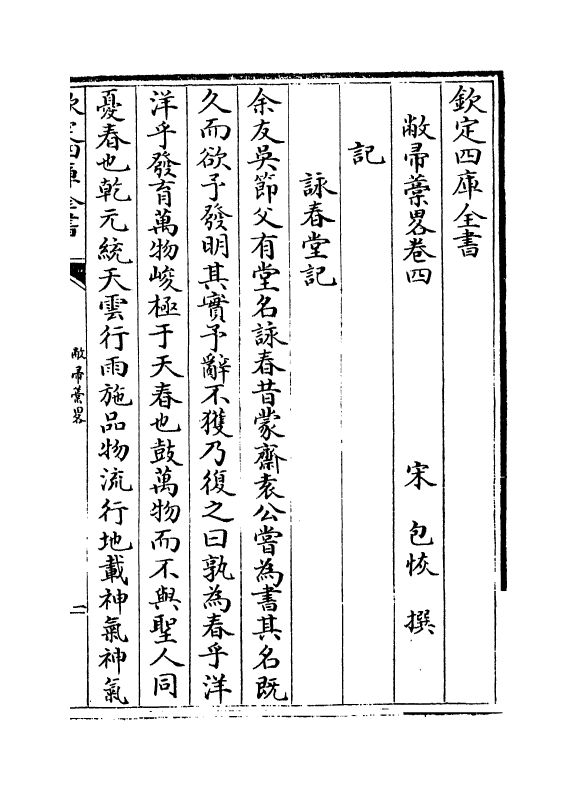 欽定四庫全書
敝帚藁畧卷四
宋 包恢 撰
記
詠春堂記
余友吳節父有堂名詠春昔蒙齋袁公嘗為書其名既
久而欲予發明其實予辭不獲乃復之曰孰為春乎洋
洋乎發育萬物峻極于天春也鼓萬物而不與聖人同
憂春也乾元統天雲行雨施品物流行地載神氣神氣
欽定四庫全書
敝帚藁畧
一